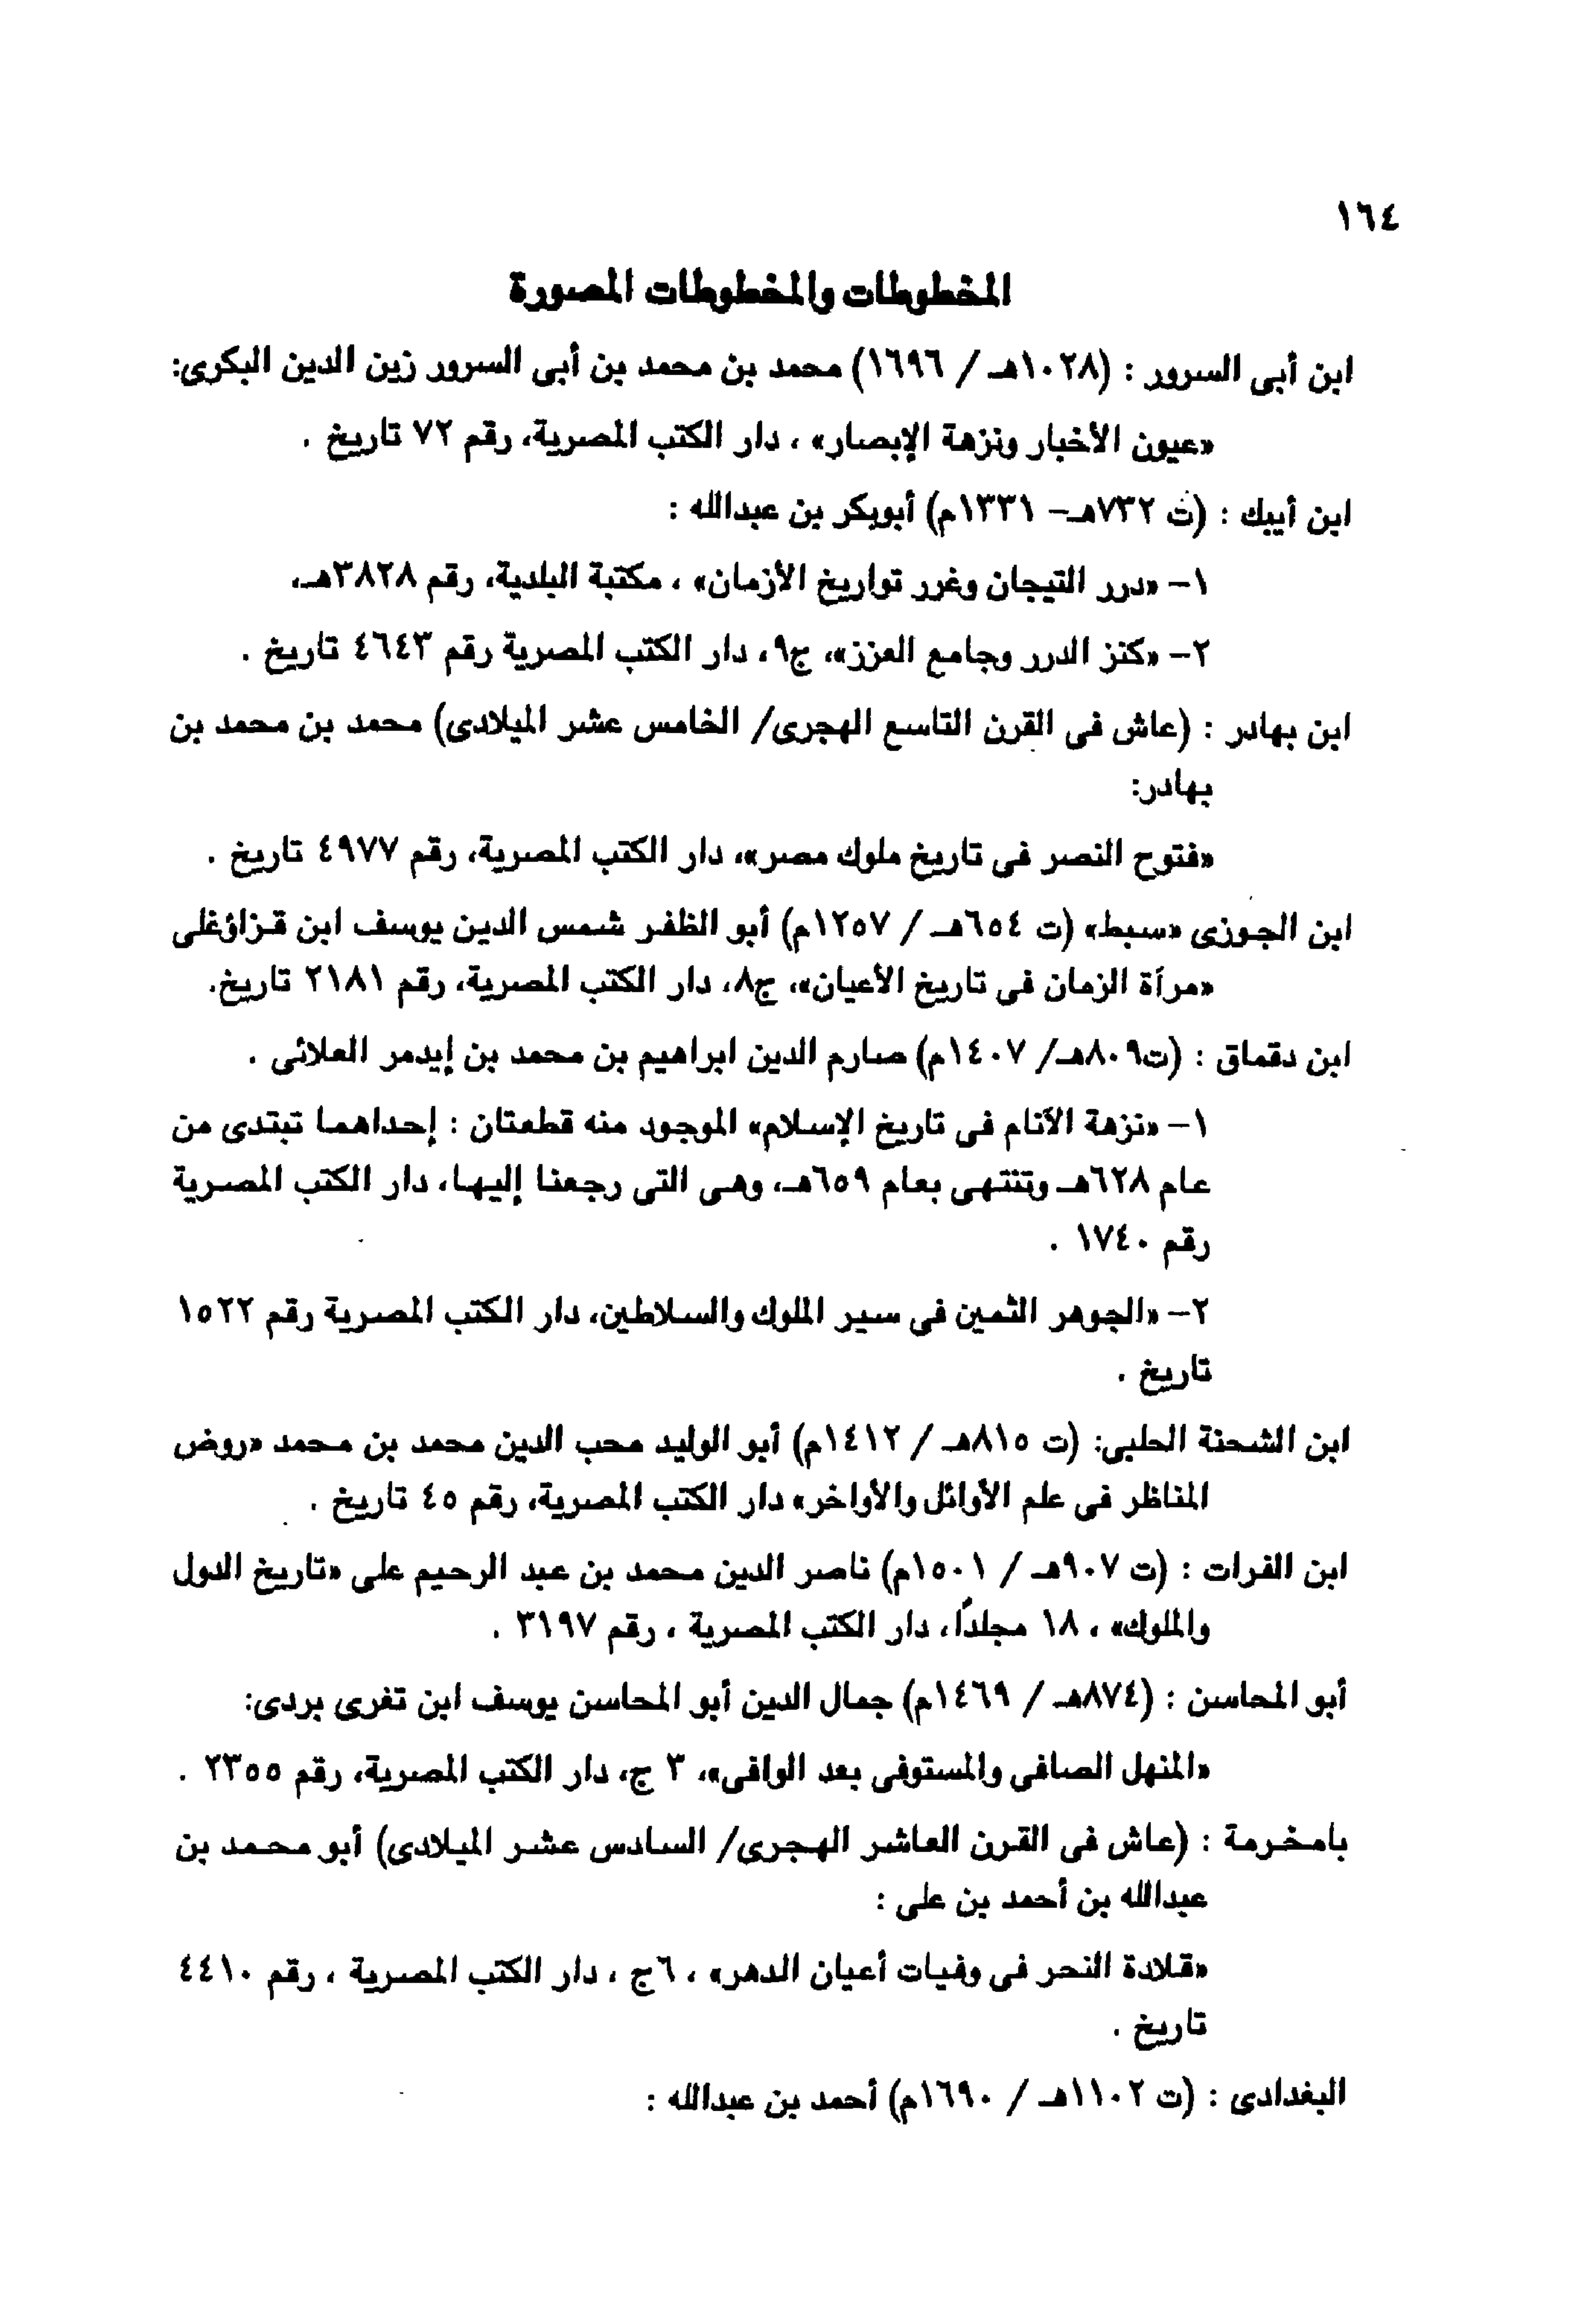 ١٦٤
المخطوطات والمخطوطات المصورة
ابن أبى السرور : (١٠٢٨هـ / ١٦٩٦) محمد بن محمد بن أبى السرور زين الدين البكرى:
«عيون الأخبار ونزهة الإبصار» ، دار الكتب المصرية، رقم ٧٢ تاريخ .
ابن أيبك : (ت ٧٣٢هـ– ١٣٣١م) أبوبكر بن عبدالله :
١– «درر التيجان وغرر تواريخ الأزمان» ، مكتبة البلدية، رقم ٣٨٢٨هـ.
٢– «كنز الدرر وجامع العزز»، ج٩، دار الكتب المصرية رقم ٤٦٤٣ تاريخ .
ابن بهادر : (عاش فى القرن التاسع الهجرى/ الخامس عشر الميلادى) محمد بن محمد بن
بهادر:
«فتوح النصر فى تاريخ ملوك مصر»، دار الكتب المصرية، رقم ٤٩٧٧ تاريخ .
ابن الجوزى «سبط» (ت ٦٥٤هـ / ١٢٥٧م) أبو الظفر شمس الدين يوسف ابن قزاؤغلى
«مرآة الزمان فى تاريخ الأعيان»، ج٨، دار الكتب المصرية، رقم ٢١٨١ تاريخ.
ابن دقماق : (ت٨٠٩هـ/ ١٤٠٧م) صارم الدين ابراهيم بن محمد بن إيدمر العلائى .
١– «نزهة الأنام فى تاريخ الإسلام» الموجود منه قطعتان : إحداهما تبتدى من
عام ٦٢٨هـ وتنتهى بعام ٦٥٩هـ، وهى التى رجعنا إليها، دار الكتب المصرية
رقم ١٧٤٠ .
٢– «الجوهر الثمين فى سير الملوك والسلاطين، دار الكتب المصرية رقم ١٥٢٢
تاريخ .
ابن الشحنة الحلبى: (ت ٨١٥هـ / ١٤١٢م) أبو الوليد محب الدين محمد بن محمد «روض
المناظر فى علم الأوائل والأواخر» دار الكتب المصرية، رقم ٤٥ تاريخ .
ابن الفرات : (ت ٩٠٧هـ / ١٥٠١م) ناصر الدين محمد بن عبد الرحيم على «تاريخ الدول
والملوك» ، ١٨ مجلدًا، دار الكتب المصرية ، رقم ٣١٩٧ .
أبو المحاسن : (٨٧٤هـ / ١٤٦٩م) جمال الدين أبو المحاسن يوسف ابن تغرى بردى:
«المنهل الصافى والمستوفى بعد الوافى»، ٣ ج، دار الكتب المصرية، رقم ٢٣٥٥ .
بامخرمة : (عاش فى القرن العاشر الهجرى/ السادس عشر الميلادى) أبو محمد بن
عبدالله بن أحمد بن على :
«قلادة النحر فى وفيات أعيان الدهر» ، ٦ج ، دار الكتب المصرية ، رقم ٤٤١٠
تاريخ .
البغدادى : (ت ١١٠٢هـ / ١٦٩٠م) أحمد بن عبدالله :